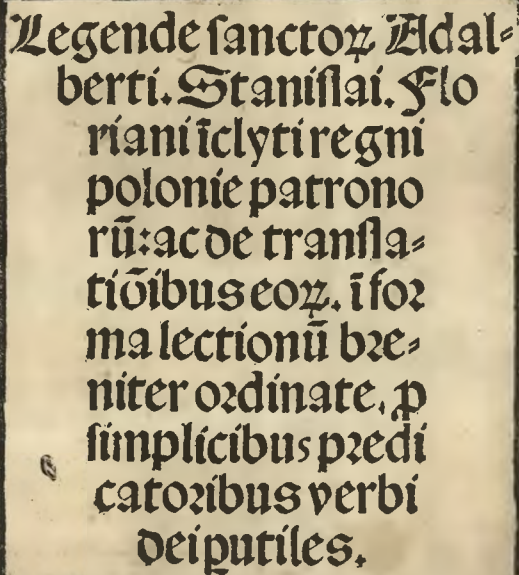 Legende ſanctoꝝ Adal⸗
berti. Staniſlai. Flo
riani ĩclyti regni
polonie patrono
rũ: ac de tranſla⸗
tiõibus eoꝝ. ĩ foꝛ
ma lectionũ bꝛe⸗
niter oꝛdinate. ꝓ
ſimplicibus pꝛedi
catoꝛibus verbi
dei ꝑutiles.